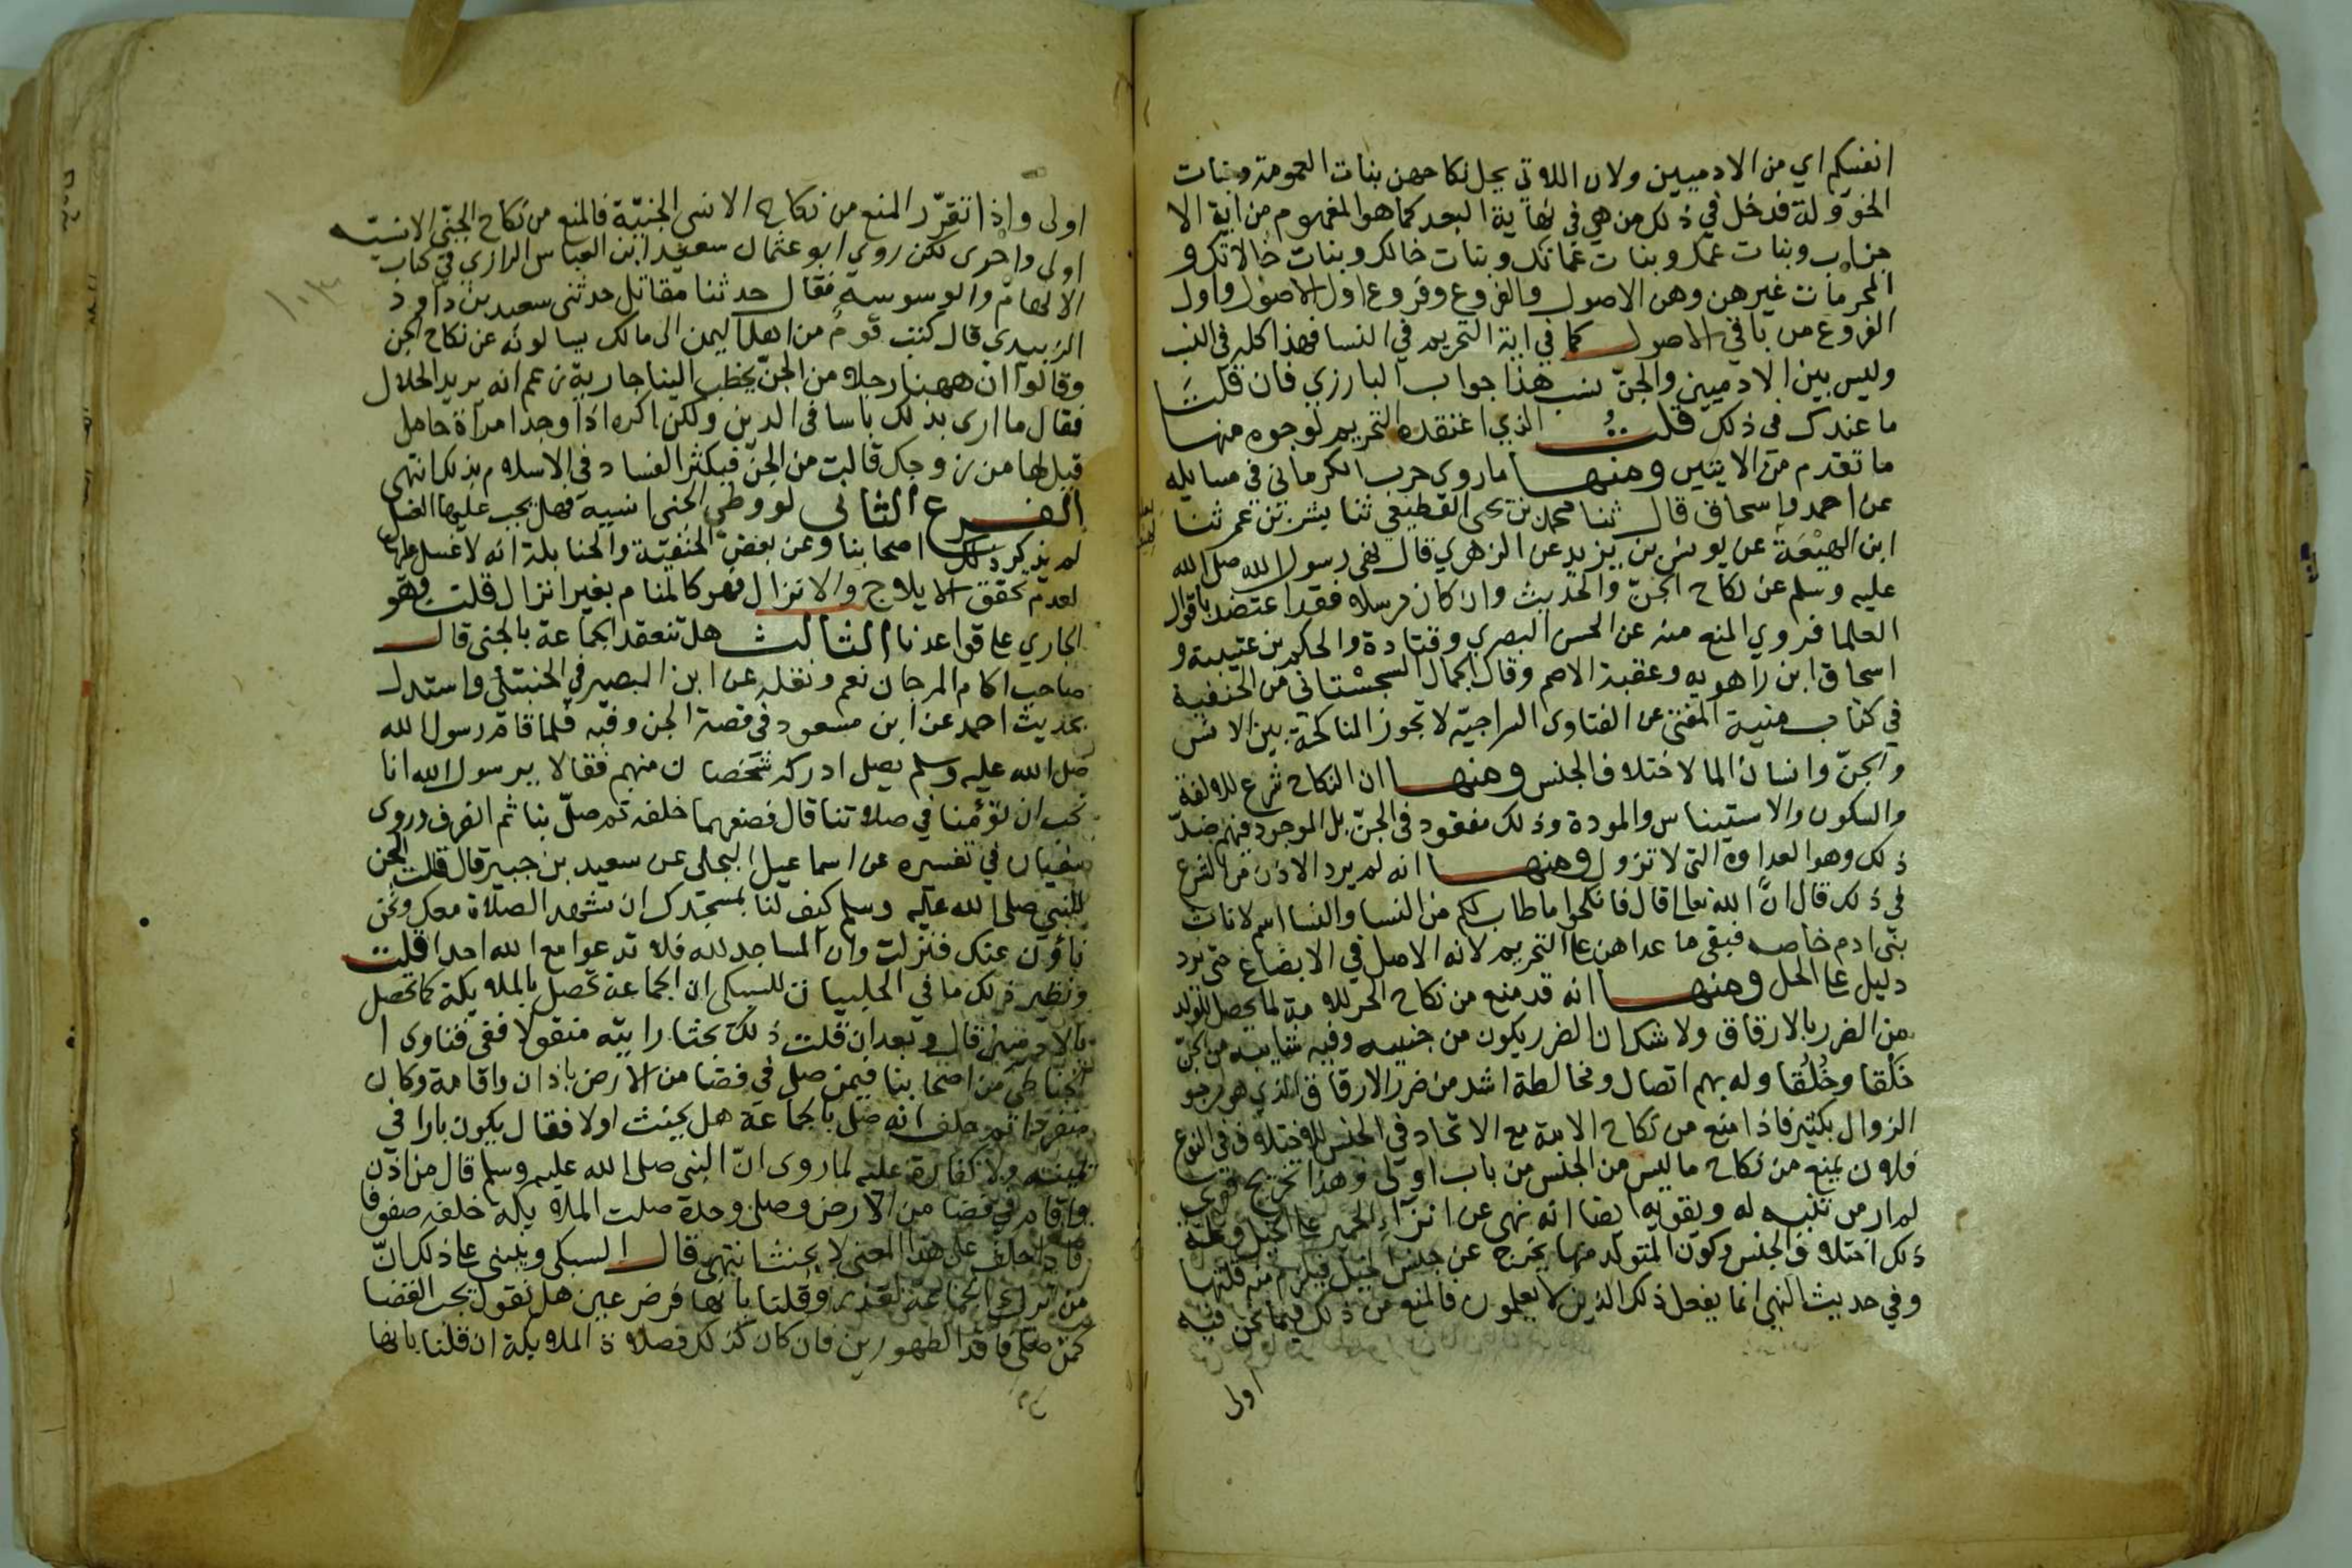 انفسكم اي من الادميين ولان اللاتي يحل نكاحهن بنات العمومة وبنات
الخوولة فدخل في ذلك من هي في نهاية البعد كما هو المفهوم من اية الا
حزاب وبنات عمك وبنات عماتك وبنات خالك وبنات خالاتك و
المحرمات غيرهن وهن الاصول والفروع وفروع اول الاصول واول
الفروع من باقي الاصول كما في اية التحريم في النسا فهذا كله في النسب
وليس بين الادميين والجنّ نسب هذا جواب البارزي فان قلت
ما عندك في ذلك قلتُ الذي اعتقده التحريم لوجوه منها
ما تقدم من الايتين ومنها ما روي حرب الكرماني في مسايله
عن احمد واسحاق قال ثنا محمد بن يحيى القطيعي ثنا بشر بن عمر ثنا
ابن لهيْعَة عن يونس بن يزيد عن الزهري قال نهى رسول الله صلى الله
عليه وسلم عن نكاح الجنّ والحديث وان كان مرسلا فقد اعتضد باقوال
العلما فروي المنع منه عن الحسن البصري وقتادة والحكم بن عتيبة و
اسحاق ابن راهويه وعقبة الاصم وقال الجمال السجستاني من الحنفية
في كتاب منية المفتي عن الفتاوى السراجيّه لا تجوز المناكحة بين الانس
والجنّ وانسان الما لاختلاف الجنس ومنها ان النكاح شرع للالفة
والسكون والاستيناس والمودة وذلك مفقود في الجنّ بل الموجود فيهم ضدّ
ذلك وهو العداوة التي لا تزول ومنها انه لم يرد الاذن من الشرع
في ذلك قال انّ الله تعالى قال فانكحوا ما طاب لكم من النسا والنسا اسم لاناث
بني ادم خاصه فبقى ما عداهن على التحريم لانه الاصل في الابضاع حتى يرد
دليل على الحل ومنها انه قد منع من نكاح الحر للامة لما يحصل للولد
من الضرر بالارقاق ولا شك ان الضرر بكون من جنيه وفيه شايبه من الجنّ
خَلْقا وخُلُقا وله بهم اتصال ومخالطة اشد من ضرر الارقاق الذي هو مرجو
الزوال بكثير فاذا منع من نكاح الامة مع الاتحاد في الجنس للاختلاف في النوع
فلان يمنع من نكاح ما ليس من الجنس من باب اولى وهذا تخريج قوي
لم ار من تنبه له ويقويه ايضا انه نهى عن انزآء الحمير على الخيل وعلة
ذلك اختلاف الجنس وكون المتولد منها يخرج عن جنس الخيل فيلزم منه قلتها
وفي حديث النهي انما يفعل ذلك الذين لا يعلمون فالمنع من ذلك فيما نحن فيه
اولى
اولى واذا تقرّر المنع من نكاح الانسي الجنيّة فالمنع من نكاح الجنّي الانسيّه
اولى واحرى لكن روي ابو عثمان سعيد ابن العباس الرازي في كتاب
الالهام والوسوسه فقال حدثنا مقاتل حدثنى سعيد بن داود
الزبيدي قال كتب قوم من اهل اليمن الى مالك يسالونه عن نكاح الجن
وقالوا ان ههنا رجلا من الجنّ يخطب الينا جارية زعم انه يريد الحلال
فقال ما ارى بذلك باسا في الدين ولكن اكره اذا وجد امراة حامل
قيل لها من زوجك قالت من الجنّ فيكثر الفساد في الاسلام بذلك انتهى
الفرع الثاني لو وطي الجني انسية فهل يجب عليها الغسل
لم يذكر ذلك اصحابنا وعن بعض الحنفيّة والحنابلة انه لا غسل عليها
لعدم تحقق الايلاج والانزال فهو كالمنام بغير انزال قلت وهو
الجاري على قواعدنا الثالث هل تنعقد الجماعة بالجني قال
صاحب اكام المرجان نعم ونقله عن ابن الصيرفي الحنبلي واستدل
بحديث احمد عن ابن مسعود في قصة الجن وفيه فلما قام رسول الله
صلى الله عليه وسلم يصل ادركه شخصان منهم فقالا يرسول الله انا
نحب ان تؤمّنا في صلاتنا قال فصفهما خلفه ثم صلّ بنا ثم انصرف وروى
سفيان في تفسيره عن اسماعيل البجلي عن سعيد بن جبير قال قالت الجن
للنبي صلى الله عليه وسلم كيف لنا بمسجدك ان نشهد الصلاة معك ونحن
ناؤون عنك فنزلت وان المساجد لله فلا تدعوا مع الله احدا قلت
ونظير ذلك ما في الحلبيات للسبكي ان الجماعة تحصل بالملايكة كما تحصل
بالادميين قال وبعد ان قلت ذلك بحثا رايته منقولا ففي فتاوى ا
لحناطي من اصحابنا فيمن صلى في فضا من الارض باذان واقامة وكان
منفردا ثم حلف انه صلى بالجماعة هل يحنث اولا فقال يكون بارا في
يمينه ولا كفارة عليه لما روى انّ النبي صلى الله عليه وسلم قال من اذن
واقام في فضا من الارض وصلى وحده صلت الملايكة خلفه صفوفا
فاذا حلف على هذا المعنى لا يحنث انتهى قال السبكي ويبنى على ذلك انّ
من ترك الجماعة لعذر وقلنا بانها فرض عين هل نقول يجب القضا
كمن صلى فاقد الطهورين فان كان كذلك فصلاة الملايكة ان قلنا بانها